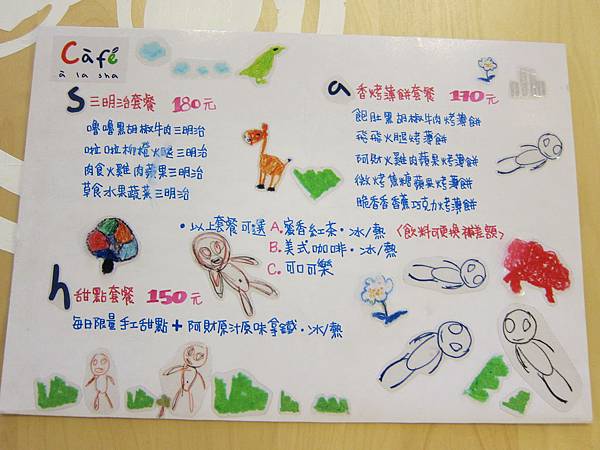 Càfé
à la sha
S 三明治套餐 180元
嚕嚕黑胡椒牛肉三明治
啦啦柳橙火腿三明治
肉食火雞肉蘋果三明治
草食水果蔬菜三明治
a 香烤薄餅套餐 170元
飽肚黑胡椒牛肉烤薄餅
飛飛火腿烤薄餅
阿財火雞肉蘋果烤薄餅
微烤焦糖蘋果烤薄餅
脆香香蕉巧克力烤薄餅
• 以上套餐可選 A. 蜜香紅茶·冰/熱 〈飲料可更換補差額〉
B. 美式咖啡·冰/熱
C. 可口可樂
h 甜點套餐 150元
每日限量手工甜點 + 阿財原汁原味拿鐵·冰/熱